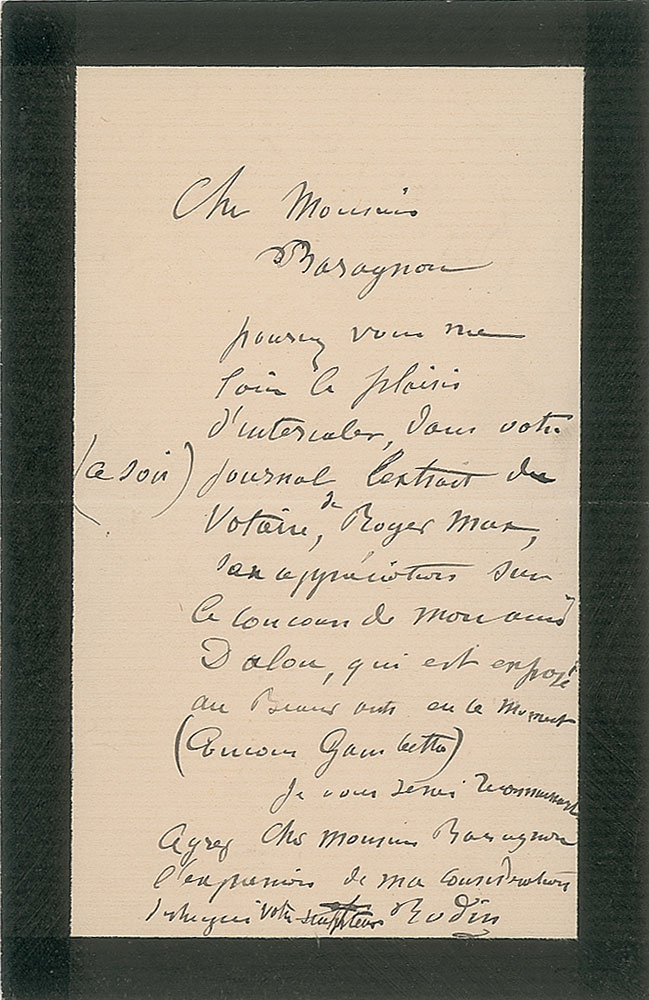 Cher Monsieur
Baragnon
pourriez vous me
faire le plaisir
d'intercaler, dans votre
(ce soir) journal l'extrait du
Voltaire, de Roger Marx,
son appréciation sur
le concours de mon ami
Dalou, qui est exposé
au Beaux arts en ce moment
(Concours Gambetta)
Je vous serai reconnaissant
Agréez Cher Monsieur Baragnon
l'expression de ma considération
distinguée votre sculpteur Rodin